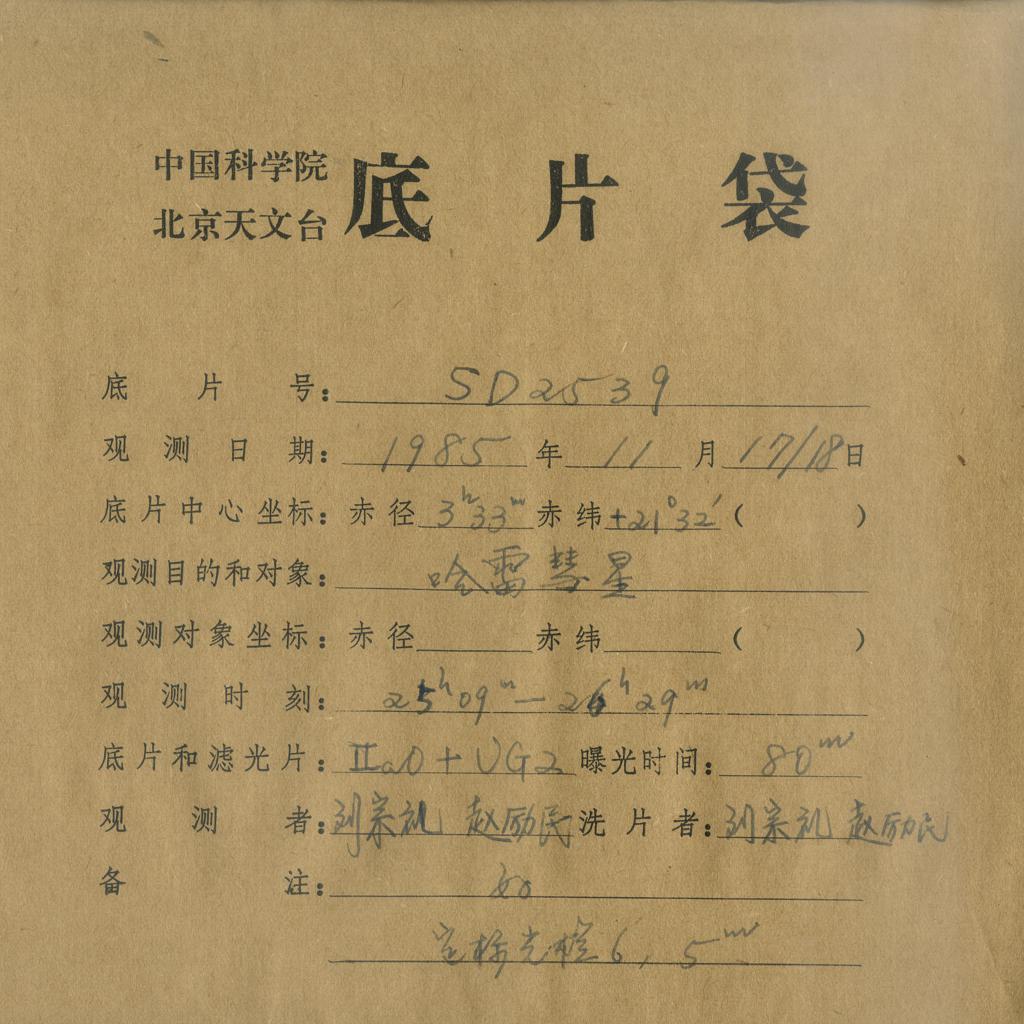 中国科学院
北京天文台
底片袋
底片号：SD2539
观测日期：1985年11月17/18日
底片中心坐标：赤径3h33m赤纬+21°32′（ ）
观测目的和对象：哈雷彗星
观测对象坐标：赤径 赤纬 （ ）
观测时刻：25h09m—26h29m
底片和滤光片：IIaO+UG2 曝光时间：80m
观测者：刘宗礼 赵励民 洗片者：刘宗礼 赵励民
备注：
定标光楔6, 5m